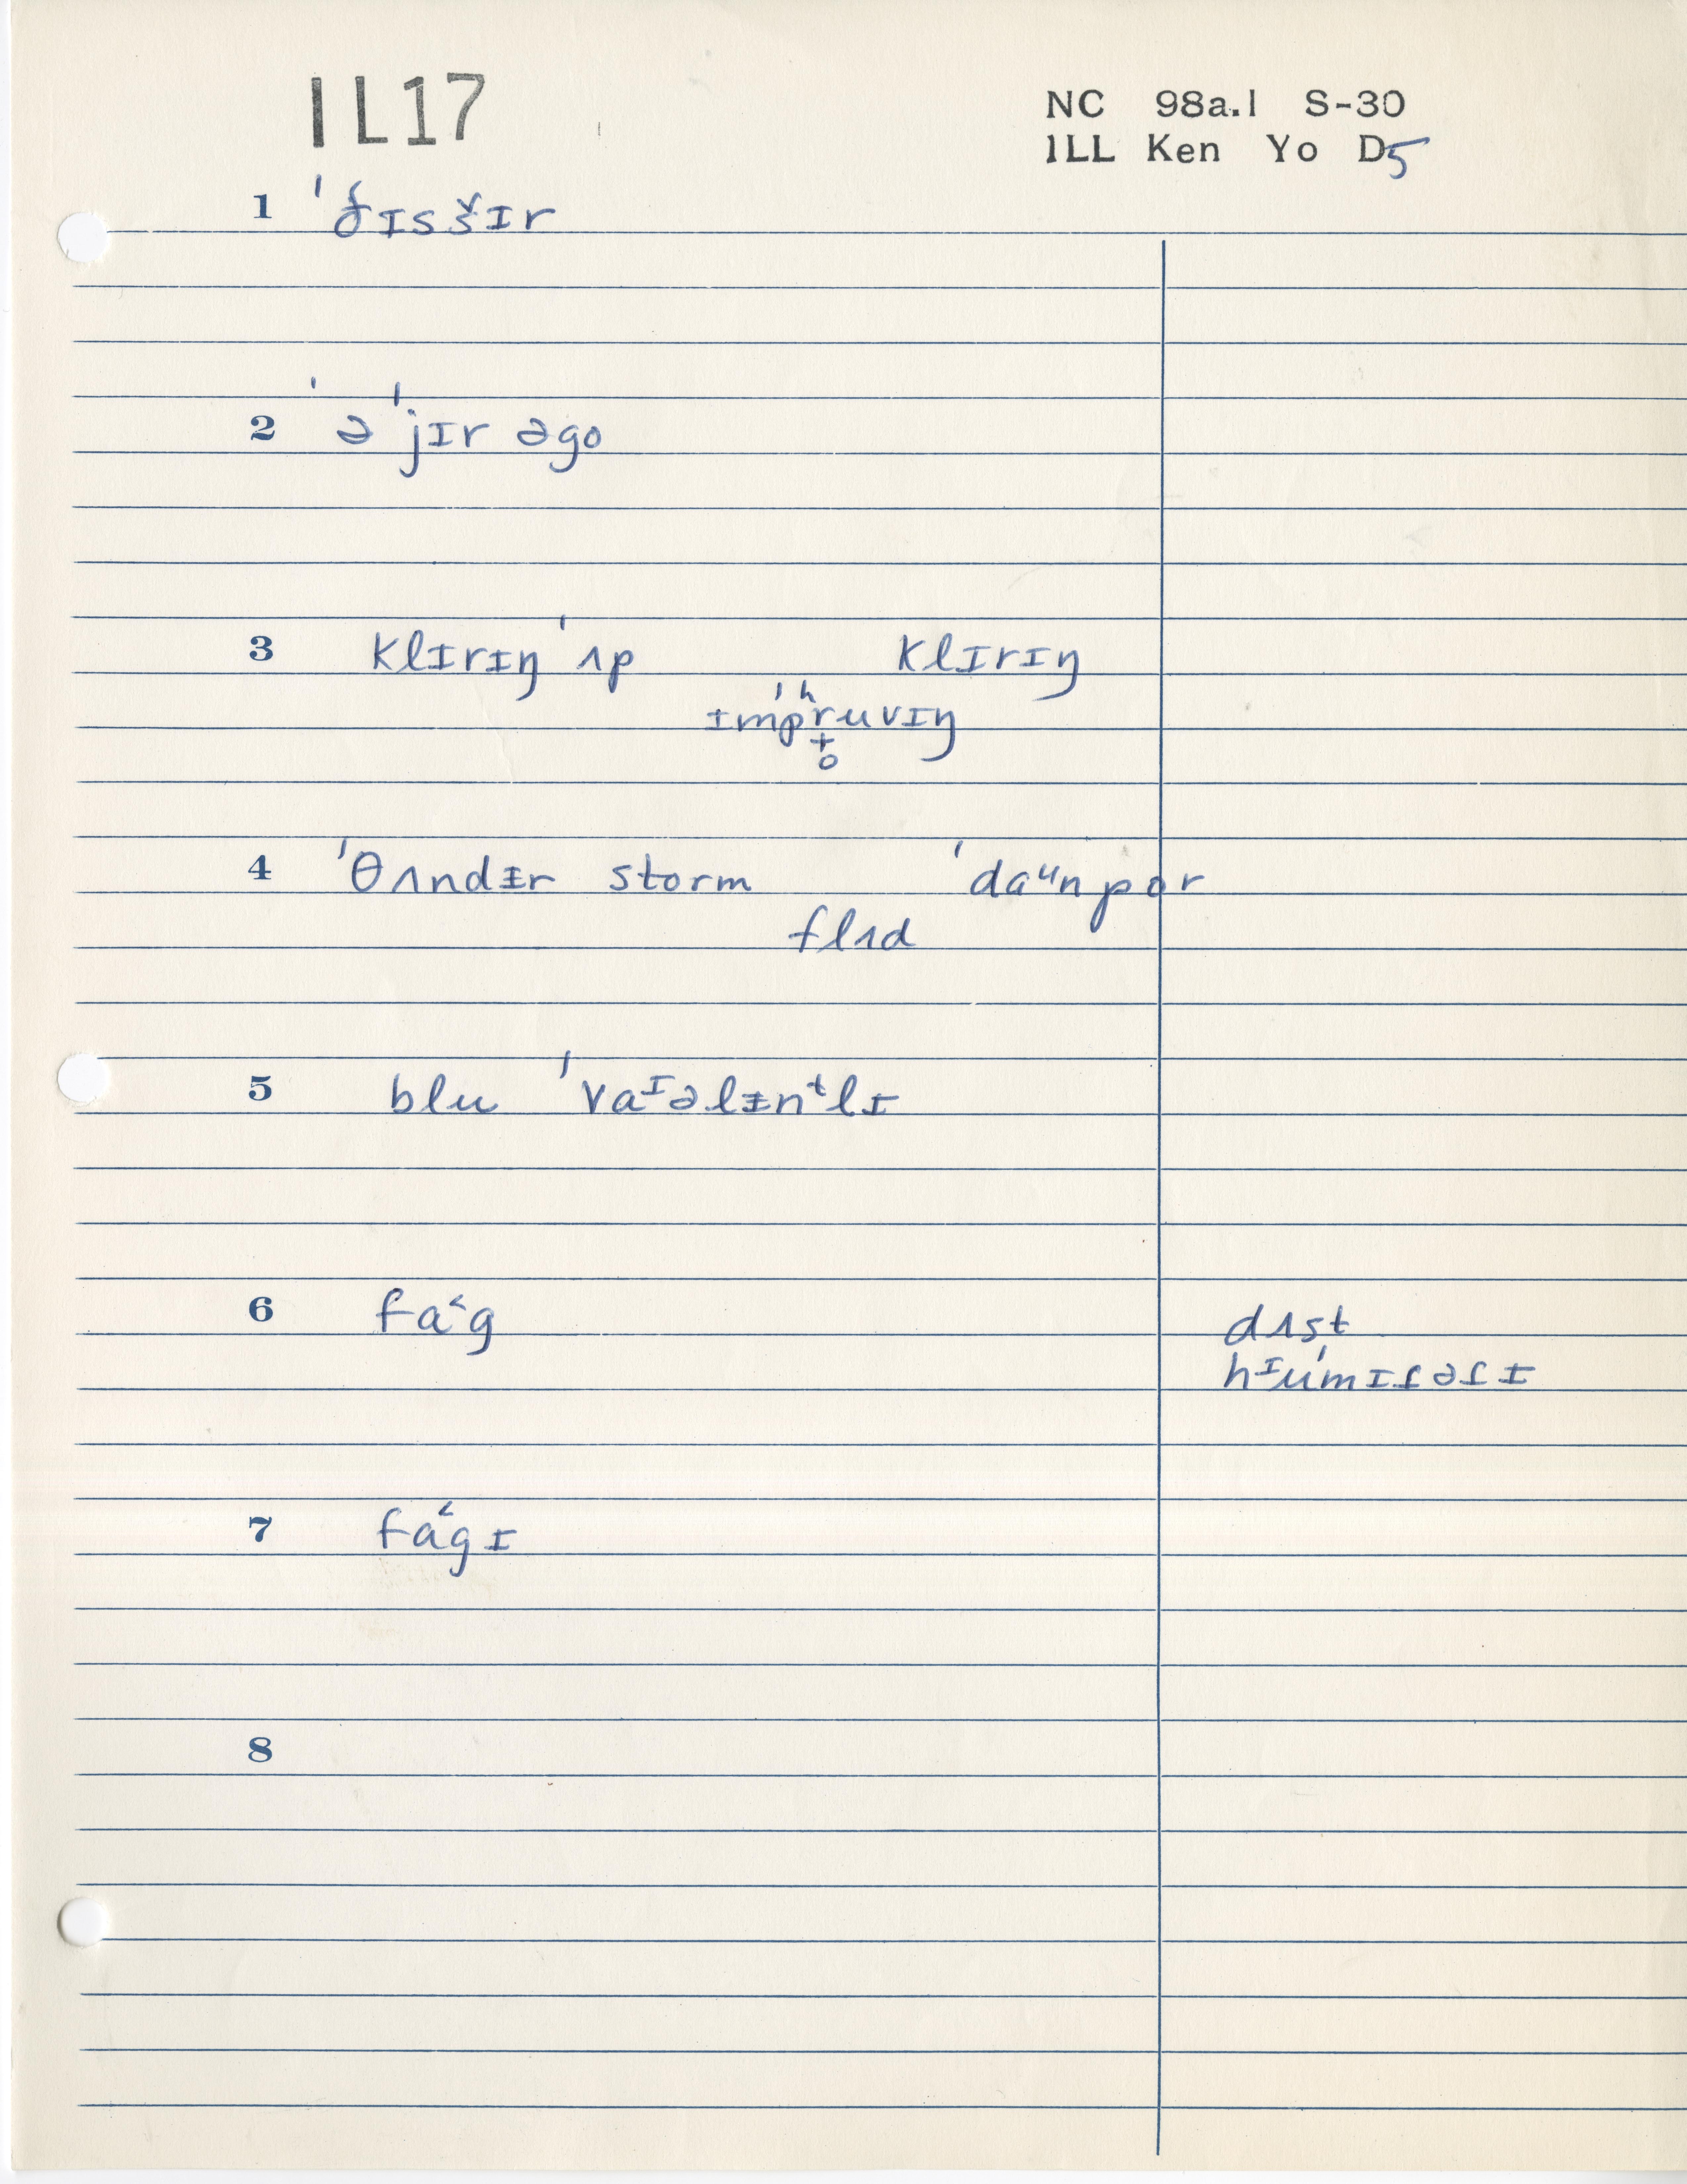 IL17
NC 98a.1 S-30
ILL Ken Yo D5
1 ˈðɪsšɪr
2 əˈjɪr əgo
3 klɪrɪŋ ˈʌp klɪrɪŋ
ɪmˈpʰr̥uvɪŋ
4 ˈθʌndᵻr storm ˈdaᵘnpor
flʌd
5 blu ˈvaᶦəlᵻnᵗlɪ
6 fa˂g dʌst
hᶦuˈmɪɾəɾɪ
7 fa˂gɪ
8